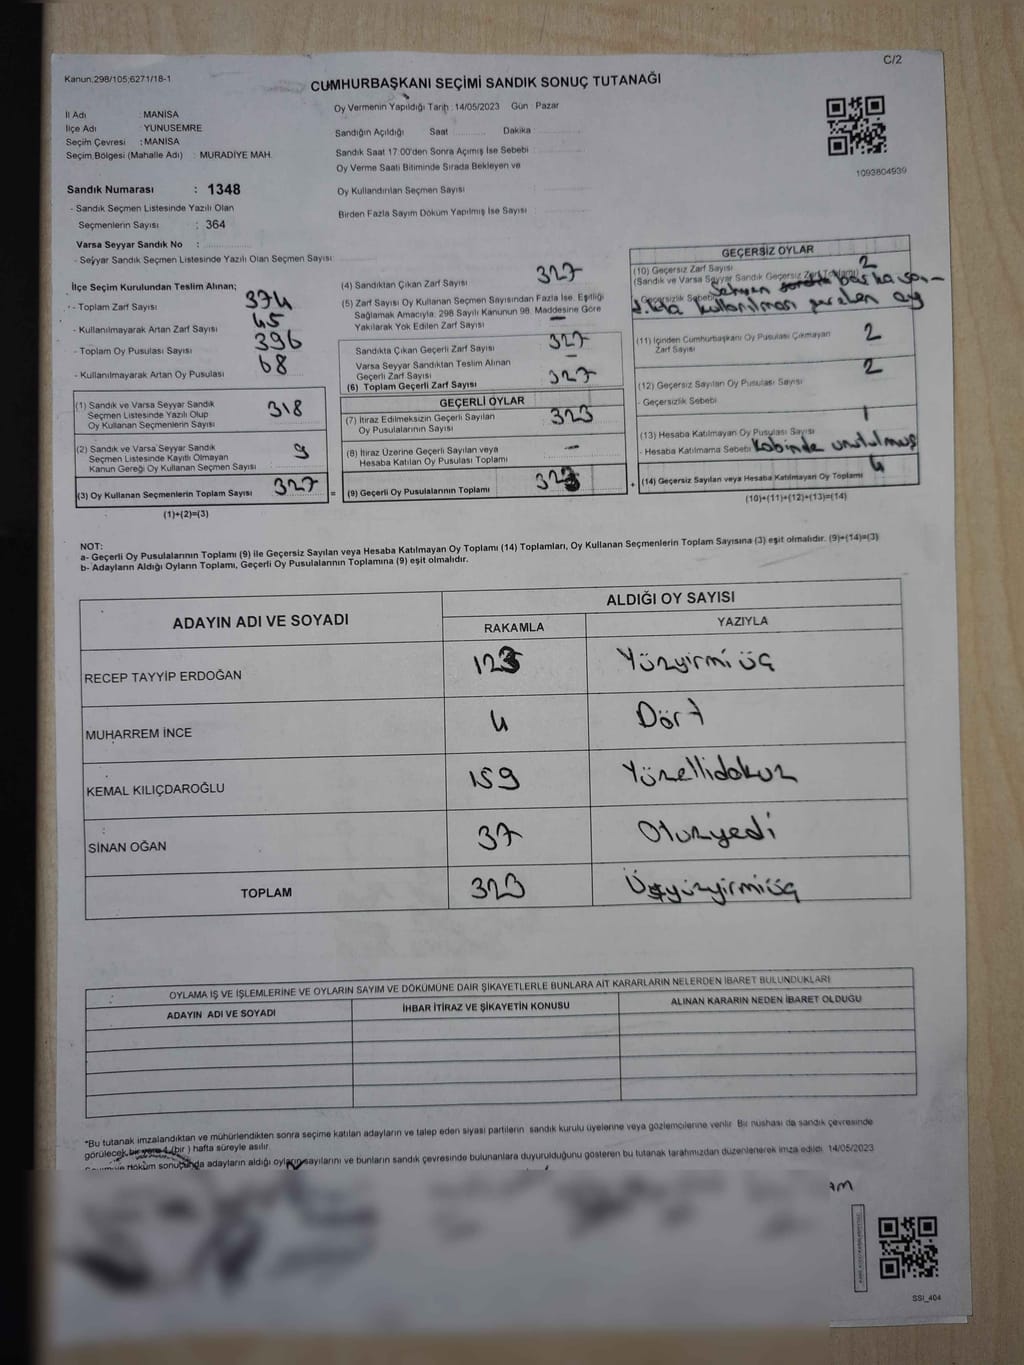 C/2
Kanun:298/105;6271/18-1
CUMHURBAŞKANI SEÇİMİ SANDIK SONUÇ TUTANAĞI
İl Adı : MANİSA
İlçe Adı : YUNUSEMRE
Seçim Çevresi : MANİSA
Seçim Bölgesi (Mahalle Adı) : MURADİYE MAH.
Oy Vermenin Yapıldığı Tarih : 14/05/2023 Gün : Pazar
Sandığın Açıldığı Saat Dakika
Sandık Saat 17:00'den Sonra Açımış İse Sebebi
Oy Verme Saati Bitiminde Sırada Bekleyen ve
Oy Kullandırılan Seçmen Sayısı
Birden Fazla Sayım Döküm Yapılmış İse Sayısı
1093804939
Sandık Numarası : 1348
- Sandık Seçmen Listesinde Yazılı Olan
Seçmenlerin Sayısı : 364
Varsa Seyyar Sandık No :
- Seyyar Sandık Seçmen Listesinde Yazılı Olan Seçmen Sayısı:
İlçe Seçim Kurulundan Teslim Alınan;
- Toplam Zarf Sayısı 374
- Kullanılmayarak Artan Zarf Sayısı 45
- Toplam Oy Pusulası Sayısı 396
- Kullanılmayarak Artan Oy Pusulası 68
(1) Sandık ve Varsa Seyyar Sandık
Seçmen Listesinde Yazılı Olup
Oy Kullanan Seçmenlerin Sayısı 318
(2) Sandık ve Varsa Seyyar Sandık
Seçmen Listesinde Kayıtlı Olmayan
Kanun Gereği Oy Kullanan Seçmen Sayısı 9
(3) Oy Kullanan Seçmenlerin Toplam Sayısı 327
(1)+(2)=(3)
(4) Sandıktan Çıkan Zarf Sayısı 327
(5) Zarf Sayısı Oy Kullanan Seçmen Sayısından Fazla İse, Eşitliği
Sağlamak Amacıyla; 298 Sayılı Kanunun 98. Maddesine Göre
Yakılarak Yok Edilen Zarf Sayısı —
Sandıkta Çıkan Geçerli Zarf Sayısı 327
Varsa Seyyar Sandıktan Teslim Alınan
Geçerli Zarf Sayısı —
(6) Toplam Geçerli Zarf Sayısı 327
GEÇERLİ OYLAR
(7) İtiraz Edilmeksizin Geçerli Sayılan
Oy Pusulalarının Sayısı 323
(8) İtiraz Üzerine Geçerli Sayılan veya
Hesaba Katılan Oy Pusulası Toplamı —
= (9) Geçerli Oy Pusulalarının Toplamı 323 +
GEÇERSİZ OYLAR
(10) Geçersiz Zarf Sayısı 2
(Sandık ve Varsa Seyyar Sandık Geçersiz Zarf Toplamı)
Geçersizlik Sebebi başka san-
dıkta kullanılması gereken oy
(11) İçinden Cumhurbaşkanı Oy Pusulası Çıkmayan
Zarf Sayısı 2
(12) Geçersiz Sayılan Oy Pusulası Sayısı 2
- Geçersizlik Sebebi
(13) Hesaba Katılmayan Oy Pusulası Sayısı 1
- Hesaba Katılmama Sebebi Kabinde unutulmuş
(14) Geçersiz Sayılan veya Hesaba Katılmayan Oy Toplamı 4
(10)+(11)+(12)+(13)=(14)
NOT:
a- Geçerli Oy Pusulalarının Toplamı (9) ile Geçersiz Sayılan veya Hesaba Katılmayan Oy Toplamı (14) Toplamları, Oy Kullanan Seçmenlerin Toplam Sayısına (3) eşit olmalıdır. (9)+(14)=(3)
b- Adayların Aldığı Oyların Toplamı, Geçerli Oy Pusulalarının Toplamına (9) eşit olmalıdır.
ADAYIN ADI VE SOYADI ALDIĞI OY SAYISI
RAKAMLA YAZIYLA
RECEP TAYYİP ERDOĞAN 123 Yüzyirmi üç
MUHARREM İNCE 4 Dört
KEMAL KILIÇDAROĞLU 159 Yüzellidokuz
SİNAN OĞAN 37 Otuzyedi
TOPLAM 323 Üçyüzyirmiüç
OYLAMA İŞ VE İŞLEMLERİNE VE OYLARIN SAYIM VE DÖKÜMÜNE DAİR ŞİKAYETLERLE BUNLARA AİT KARARLARIN NELERDEN İBARET BULUNDUKLARI
ADAYIN ADI VE SOYADI İHBAR İTİRAZ VE ŞİKAYETİN KONUSU ALINAN KARARIN NEDEN İBARET OLDUĞU
*Bu tutanak imzalandıktan ve mühürlendikten sonra seçime katılan adayların ve talep eden siyasi partilerin sandık kurulu üyelerine veya gözlemcilerine verilir. Bir nüshası da sandık çevresinde
görülecek bir yere 1 (bir) hafta süreyle asılır.
döküm sonucunda adayların aldığı oyların sayılarını ve bunların sandık çevresinde bulunanlara duyurulduğunu gösteren bu tutanak tarafımızdan düzenlenerek imza edildi. 14/05/2023
SSI_404